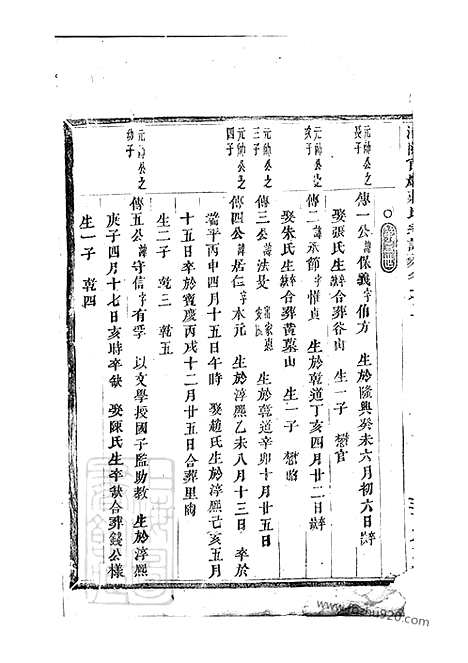 元帥公之長子
傳一公諱保義字伯方 生於隆興癸未六月初六日缺卒
娶張氏生缺卒合葬谷山 生一子 懋官
元帥公之次子
傳二諱永節字惟貞 生於乾道丁亥四月廿二日缺卒
娶朱氏生缺卒合葬黄墓山 生一子 懋昭
元帥公之三子
傳三公諱法是 生於乾道辛卯十月廿五日
元帥公之四子
傳四公諱居仁字本元 生於淳熙乙未八月十三日 卒於
端平丙申四月十五日午時 娶趙氏生於淳熙己亥五月
十五日卒於寳慶丙戌十二月廿五日合葬里陶
生二子 乾三 乾五
元帥公之幼子
傳五公諱守信字有孚 以文學授國子監助教 生於淳熙
庚子四月十七日亥時卒缺 娶陳氏生卒缺合葬錢公樣
生一子 乾四
www.jiazhu920.com